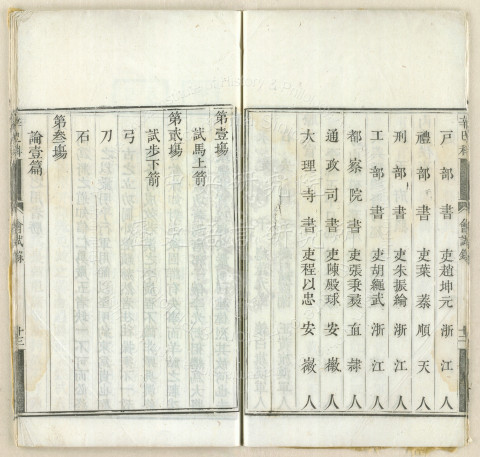 戸部書吏趙坤元浙江人
禮部書吏葉蓁順天人
刑部書吏朱振綸浙江人
工部書吏胡繩武浙江人
都察院書吏張秉彛直隸人
通政司書吏陳殿球安徽人
大理寺書吏程以忠安徽人
會試錄
十二
第壹塲
試馬上箭
第貳塲
試步下箭
弓
刀
石
第叁塲
論壹篇
會試錄
十三